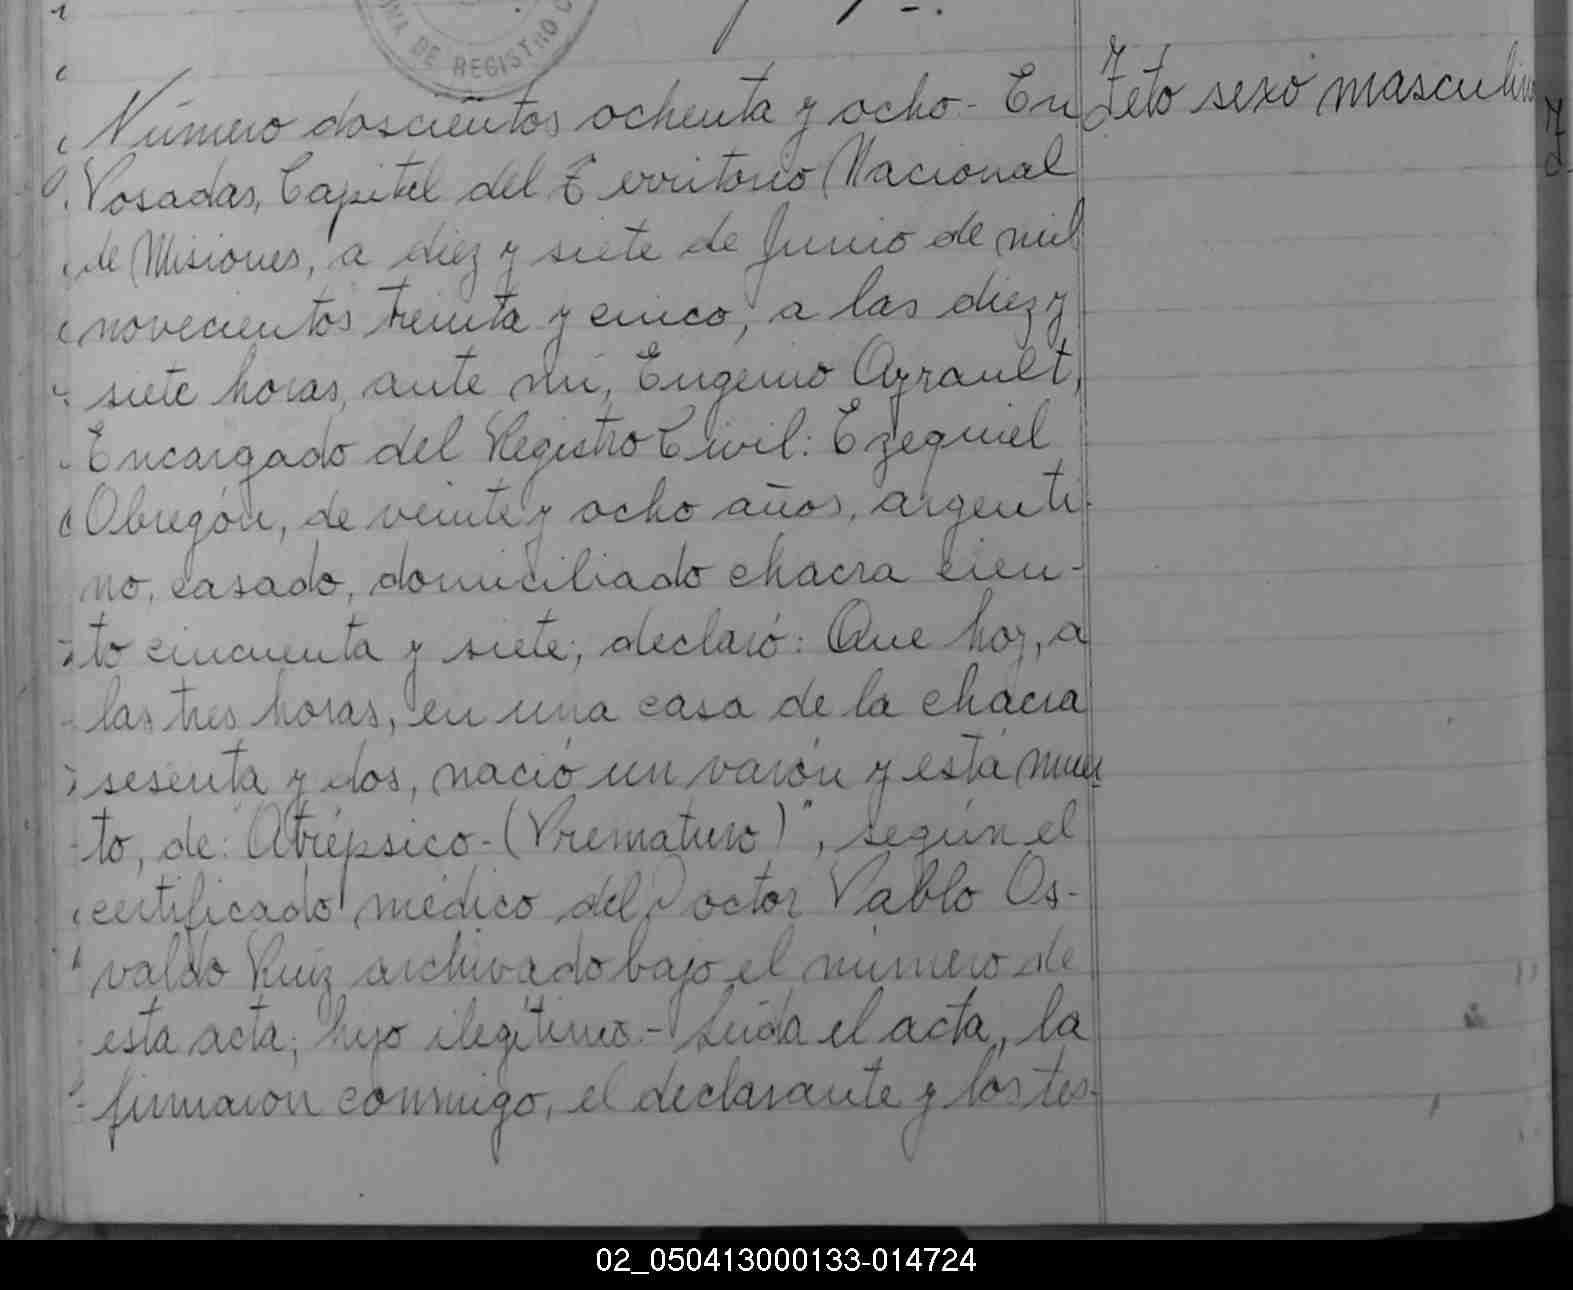 DE REGISTRO
Número doscientos ochenta y ocho - En
Posadas, Capital del Territorio Nacional
de Misiones, a diez y siete de Junio de mil
novecientos treinta y cinco, a las diez y
siete horas, ante mí, Eugenio Ayrault,
Encargado del Registro Civil: Ezequiel
Obregón, de veinte y ocho años, argenti-
no, casado, domiciliado chacra cien-
to cincuenta y siete; declaró: Que hoy, a
las tres horas, en una casa de la chacra
sesenta y dos, nació un varón y está muer
to, de: "Atrépsico - (Prematuro)", según el
certificado médico del Doctor Pablo Os-
valdo Ruiz archivado bajo el número de
esta acta; hijo ilegítimo. - Leída el acta, la
firmaron conmigo, el declarante y los tes-
Feto sexo masculino
02_050413000133-014724